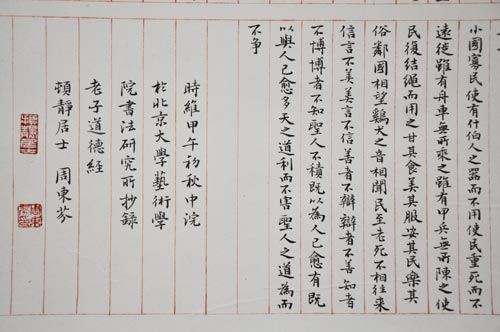 小國寡民使有什伯人之器而不用使民重死而不
遠徙雖有舟車無所乘之雖有甲兵無所陳之使
民復結繩而用之甘其食美其服安其民樂其
俗鄰國相望鷄犬之音相聞民至老死不相往來
信言不美美言不信善者不辯辯者不善知者
不博博者不知聖人不積既以為人己愈有既
以與人己愈多天之道利而不害聖人之道為而
不争
時維甲午初秋中浣
於北京大學藝術學
院書法研究所抄錄
老子道德經
頓靜居士 周東芬